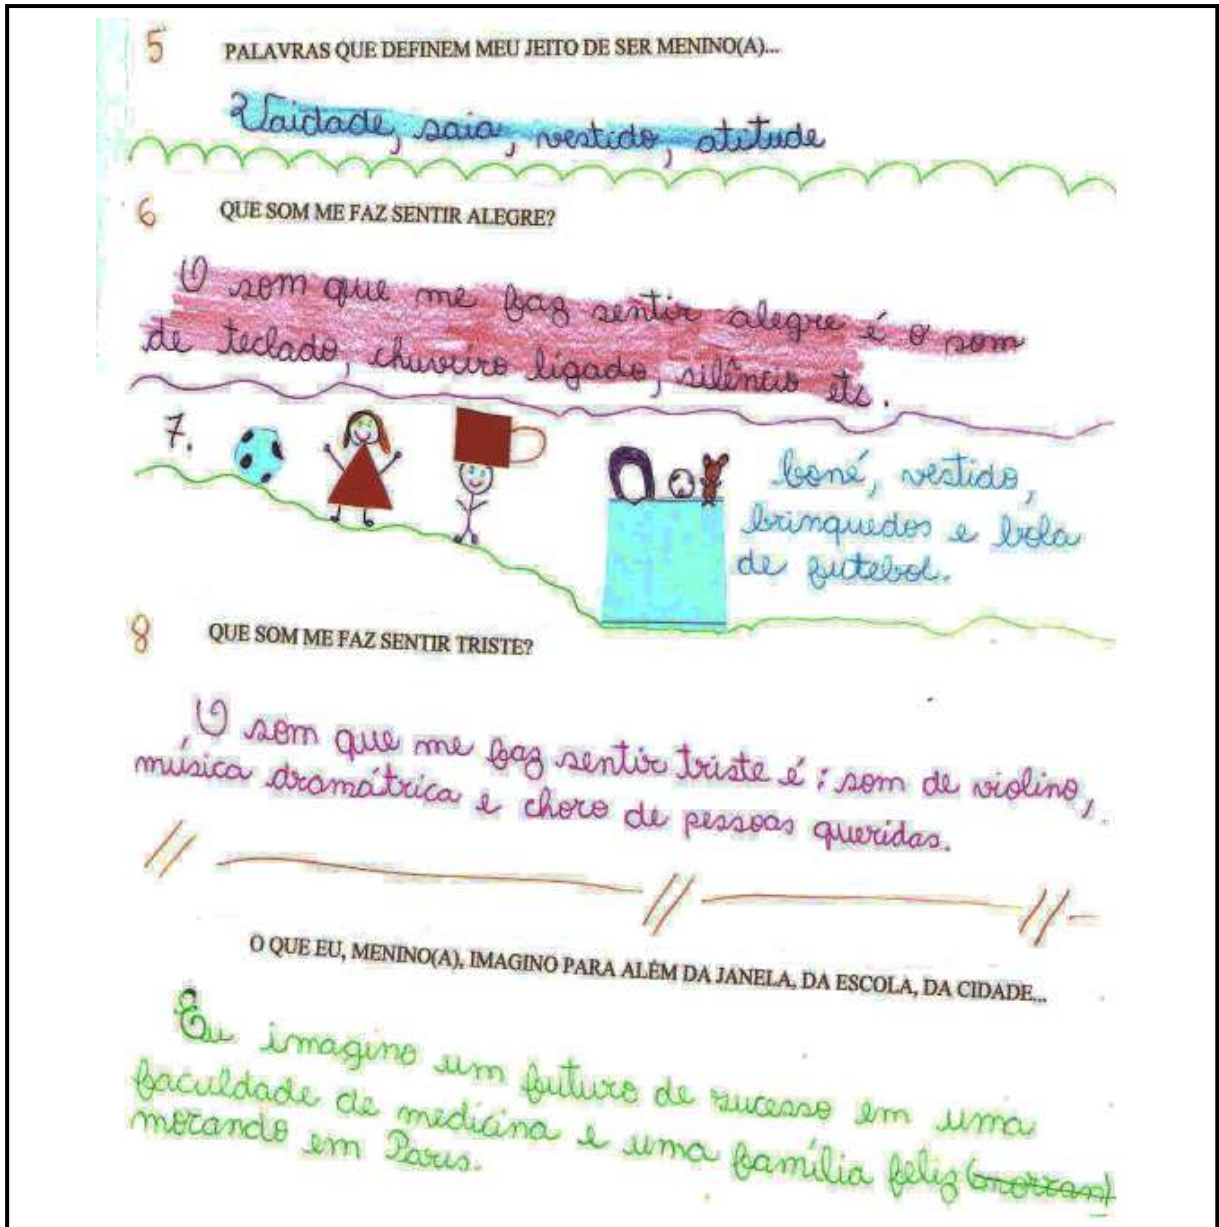 5 PALAVRAS QUE DEFINEM MEU JEITO DE SER MENINO(A)...
Vaidade, saia, vestido, atitude
6 QUE SOM ME FAZ SENTIR ALEGRE?
O som que me faz sentir alegre é o som
de teclado, chuveiro ligado, silêncio etc.
7.
boné, vestido,
brinquedos e bola
de futebol.
8 QUE SOM ME FAZ SENTIR TRISTE?
O som que me faz sentir triste é: som de violino,
música dramátrica e choro de pessoas queridas.
O QUE EU, MENINO(A), IMAGINO PARA ALÉM DA JANELA, DA ESCOLA, DA CIDADE...
Eu imagino um futuro de sucesso em uma
faculdade de medicina e uma família feliz
morando em Paris.